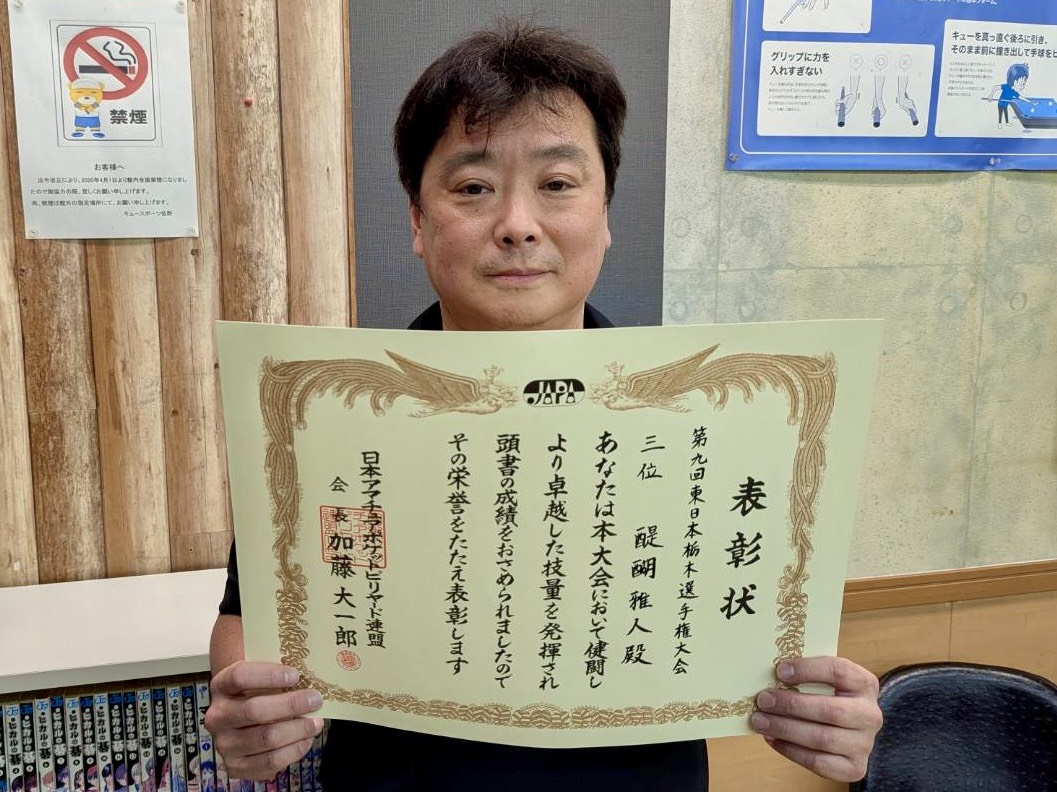 禁煙
お客様へ
法令改正により、2020年4月1日より館内全面禁煙になりまし
たので御協力の程、宜しくお願い申し上げます。
尚、喫煙は館外の指定場所にて、お願い申し上げます。
キュースポーツ佐野
グリップに力を
入れすぎない
キューを真っ直ぐ後ろに引き、
そのまま前に撞き出して手球をヒ
JAPA
表彰状
第九回東日本栃木選手権大会
三位 醍醐雅人殿
あなたは本大会において健闘し
より卓越した技量を発揮され
頭書の成績をおさめられましたので
その栄誉をたたえ表彰します
日本アマチュアポケットビリヤード連盟
会長 加藤大一郎
ヒカルの碁